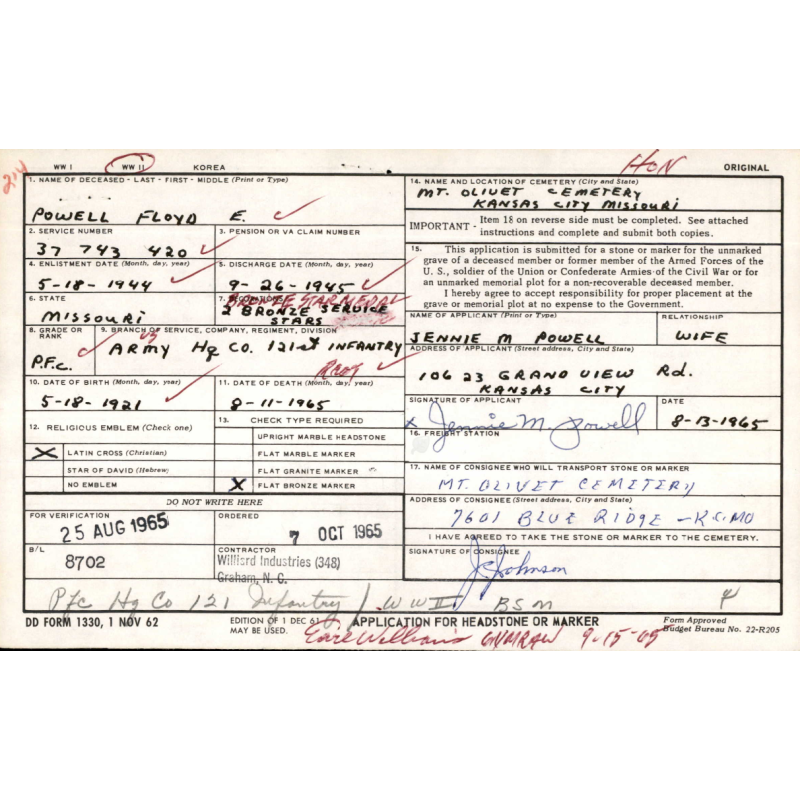 WW I WW II KOREA HON ORIGINAL
214
1. NAME OF DECEASED - LAST - FIRST - MIDDLE (Print or Type)
POWELL FLOYD E.
2. SERVICE NUMBER
37 743 420
3. PENSION OR VA CLAIM NUMBER
4. ENLISTMENT DATE (Month, day, year)
5-18-1944
5. DISCHARGE DATE (Month, day, year)
9-26-1945
6. STATE
MISSOURI
7. DECORATIONS
BRONZE STAR MEDAL
2 BRONZE SERVICE
STARS
8. GRADE OR RANK
P.F.C.
9. BRANCH OF SERVICE, COMPANY, REGIMENT, DIVISION
US
ARMY Hq CO. 121st INFANTRY
10. DATE OF BIRTH (Month, day, year)
5-18-1921
11. DATE OF DEATH (Month, day, year)
8-11-1965
12. RELIGIOUS EMBLEM (Check one)
X LATIN CROSS (Christian)
STAR OF DAVID (Hebrew)
NO EMBLEM
13. CHECK TYPE REQUIRED
UPRIGHT MARBLE HEADSTONE
FLAT MARBLE MARKER
FLAT GRANITE MARKER
X FLAT BRONZE MARKER
14. NAME AND LOCATION OF CEMETERY (City and State)
MT. OLIVET CEMETERY
KANSAS CITY MISSOURI
IMPORTANT - Item 18 on reverse side must be completed. See attached
instructions and complete and submit both copies.
15. This application is submitted for a stone or marker for the unmarked
grave of a deceased member or former member of the Armed Forces of the
U. S., soldier of the Union or Confederate Armies of the Civil War or for
an unmarked memorial plot for a non-recoverable deceased member.
I hereby agree to accept responsibility for proper placement at the
grave or memorial plot at no expense to the Government.
NAME OF APPLICANT (Print or Type)
JENNIE M POWELL
RELATIONSHIP
WIFE
ADDRESS OF APPLICANT (Street address, City and State)
10623 GRAND VIEW Rd.
KANSAS CITY
SIGNATURE OF APPLICANT
x Jennie M. Powell
DATE
8-13-1965
16. FREIGHT STATION
17. NAME OF CONSIGNEE WHO WILL TRANSPORT STONE OR MARKER
MT. OLIVET CEMETERY
ADDRESS OF CONSIGNEE (Street address, City and State)
7601 BLUE RIDGE - K.C. MO
I HAVE AGREED TO TAKE THE STONE OR MARKER TO THE CEMETERY.
SIGNATURE OF CONSIGNEE
J. Johnson
DO NOT WRITE HERE
FOR VERIFICATION
25 AUG 1965
ORDERED
7 OCT 1965
B/L
8702
CONTRACTOR
Williard Industries (348)
Graham, N. C.
Pfc Hq Co 121 Infantry / WW II / BSM
DD FORM 1330, 1 NOV 62
EDITION OF 1 DEC 61
MAY BE USED.
APPLICATION FOR HEADSTONE OR MARKER
Form Approved
Budget Bureau No. 22-R205
Earl Williams 9-15-65